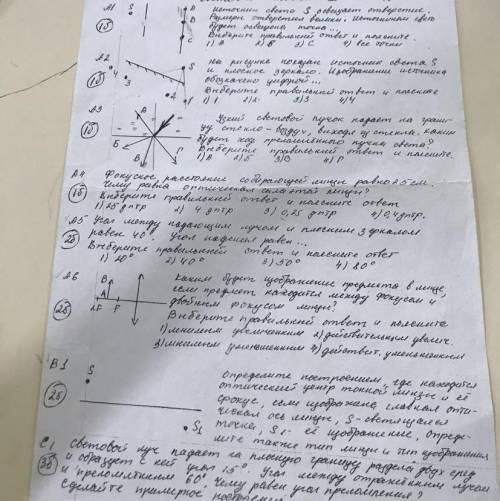 А1
1б
S
А
В
С
Источник света S освещает отверстие.
Размеры отверстия велики. Источником света
будет освещена точка...
Выберите правильный ответ и поясните.
1) А 2) В 3) С 4) все точки
А2
1б
S
4
3
2
1
На рисунке показан источник света S
и плоское зеркало. Изображение источника
обозначено цифрой...
Выберите правильный ответ и поясните
1) 1 2) 2 3) 3 4) 4
А3
1б
А
Б
В
Г
Узкий световой пучок падает на грани-
цу стекло-воздух, выходя из стекла. Каким
будет ход преломленного пучка света?
Выберите правильный ответ и поясните.
1) А 2) Б 3) В 4) Г
А4
1б
Фокусное расстояние собирающей линзы равно 25 см.
Чему равна оптическая сила этой линзы?
Выберите правильный ответ и поясните ответ
1) 25 дптр 2) 4 дптр 3) 0,25 дптр 4) 0,4 дптр.
А5 Угол между падающим лучом и плоским зеркалом
2б равен 40°. Угол падения равен...
Выберите правильный ответ и поясните ответ
1) 20° 2) 40° 3) 50° 4) 80°
А6
2б
В
А
2F F
Каким будет изображение предмета в линзе,
если предмет находится между фокусом и
двойным фокусом линзы?
Выберите правильный ответ и поясните
1) мнимым увеличенным 2) действительным увелич.
3) мнимым уменьшенным 4) действит. уменьшенным
В1
2б
S
S₁
Определите построением, где находится
оптический центр тонкой линзы и её
фокус, если изображена главная опти-
ческая ось линзы, S - светящаяся
точка, S₁ - её изображение, опреде-
лите также тип линзы и тип изображения
С1 Световой луч падает на плоскую границу раздела двух сред
3б и образует с ней угол 15°. Угол между отражённым лучом
и преломлённым 60°. Чему равен угол преломления?
Сделайте примерное построение